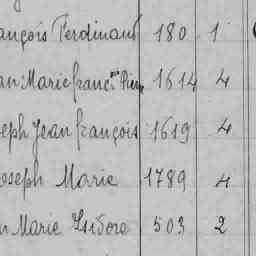 ançois Ferdinand 180 1
an Marie franc^ois Pierre 1614 4
seph Jean françois 1619 4
oseph Marie 1789 4
n Marie Isidore 503 2